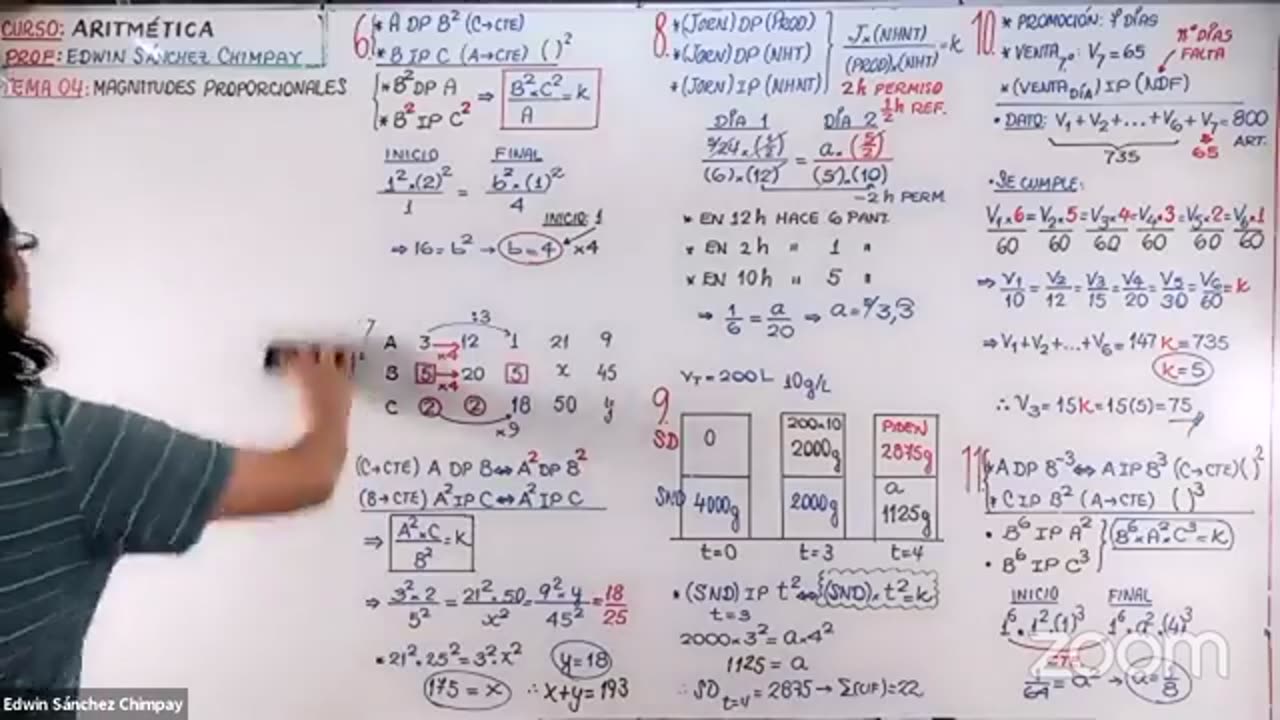 CURSO: ARITMÉTICA
PROF: EDWIN SÁNCHEZ CHIMPAY
TEMA 04: MAGNITUDES PROPORCIONALES
6. * A DP B² (C→CTE)
* B IP C (A→CTE) ( )²
* B² DP A
* B² IP C²
⇒ B²×C²/A = k
INICIO FINAL
1²×(2)²/1 = b²×(1)²/4
INICIO: 1
⇒ 16 = b² → b = 4 ×4
7
:3
A 3 → 12 1 21 9
×4
B 5 → 20 5 x 45
×4
C 2 2 18 50 y
×9
(C→CTE) A DP B ⇔ A² DP B²
(B→CTE) A² IP C ⇔ A² IP C
⇒ A²×C/B² = k
⇒ 3²×2/5² = 21²×50/x² = 9²×y/45² = 18/25
* 21²×25² = 3²×x² y=18
175 = x ∴ x+y = 193
8. * (JORN) DP (PROD)
* (JORN) DP (NHT)
* (JORN) IP (NHNT)
J×(NHNT)/(PROD)×(NHT) = k
2h PERMISO
1/2 h REF.
DÍA 1 DÍA 2
(6)×(12) = a×(5/2)/(5)×(10)
-2h PERM
* EN 12h HACE 6 PANT.
* EN 2h " 1 "
* EN 10h " 5 "
→ 1/6 = a/20 ⇒
9. VT = 200L 10g/L
SD 0 200×10 2000g PIDEN 2875g
SND 4000g 2000g a 1125g
t=0 t=3 t=4
* (SND) IP t² ⇔ (SND)×t² = k
t=3
2000×3² = a×4²
1125 = a
∴ SD t=4 = 2875 → Σ(CIF) = 22
10. * PROMOCIÓN: 7 DÍAS
* VENTA 7°: V₇ = 65
n° DÍAS FALTA
* (VENTA DÍA) IP (NDF)
• DATO: V₁+V₂+...+V₆+V₇ = 800 ART.
735 65
• SE CUMPLE:
V₁×6/60 = V₂×5/60 = V₃×4/60 = V₄×3/60 = V₅×2/60 = V₆×1/60
⇒ V₁/10 = V₂/12 = V₃/15 = V₄/20 = V₅/30 = V₆/60 = k
⇒ V₁+V₂+...+V₆ = 147k = 735
k=5
∴ V₃ = 15k = 15(5) = 75
11. * A DP B⁻³ ⇔ A IP B³ (C→CTE) ( )²
* C IP B² (A→CTE) ( )³
• B⁶ IP A²
• B⁶ IP C³
B⁶×A²×C³ = k
INICIO FINAL
1⁶×1²×(1)³ 1⁶×a²×(4)³
1/64 = a² → a = 1/8
zoom
Edwin Sánchez Chimpay